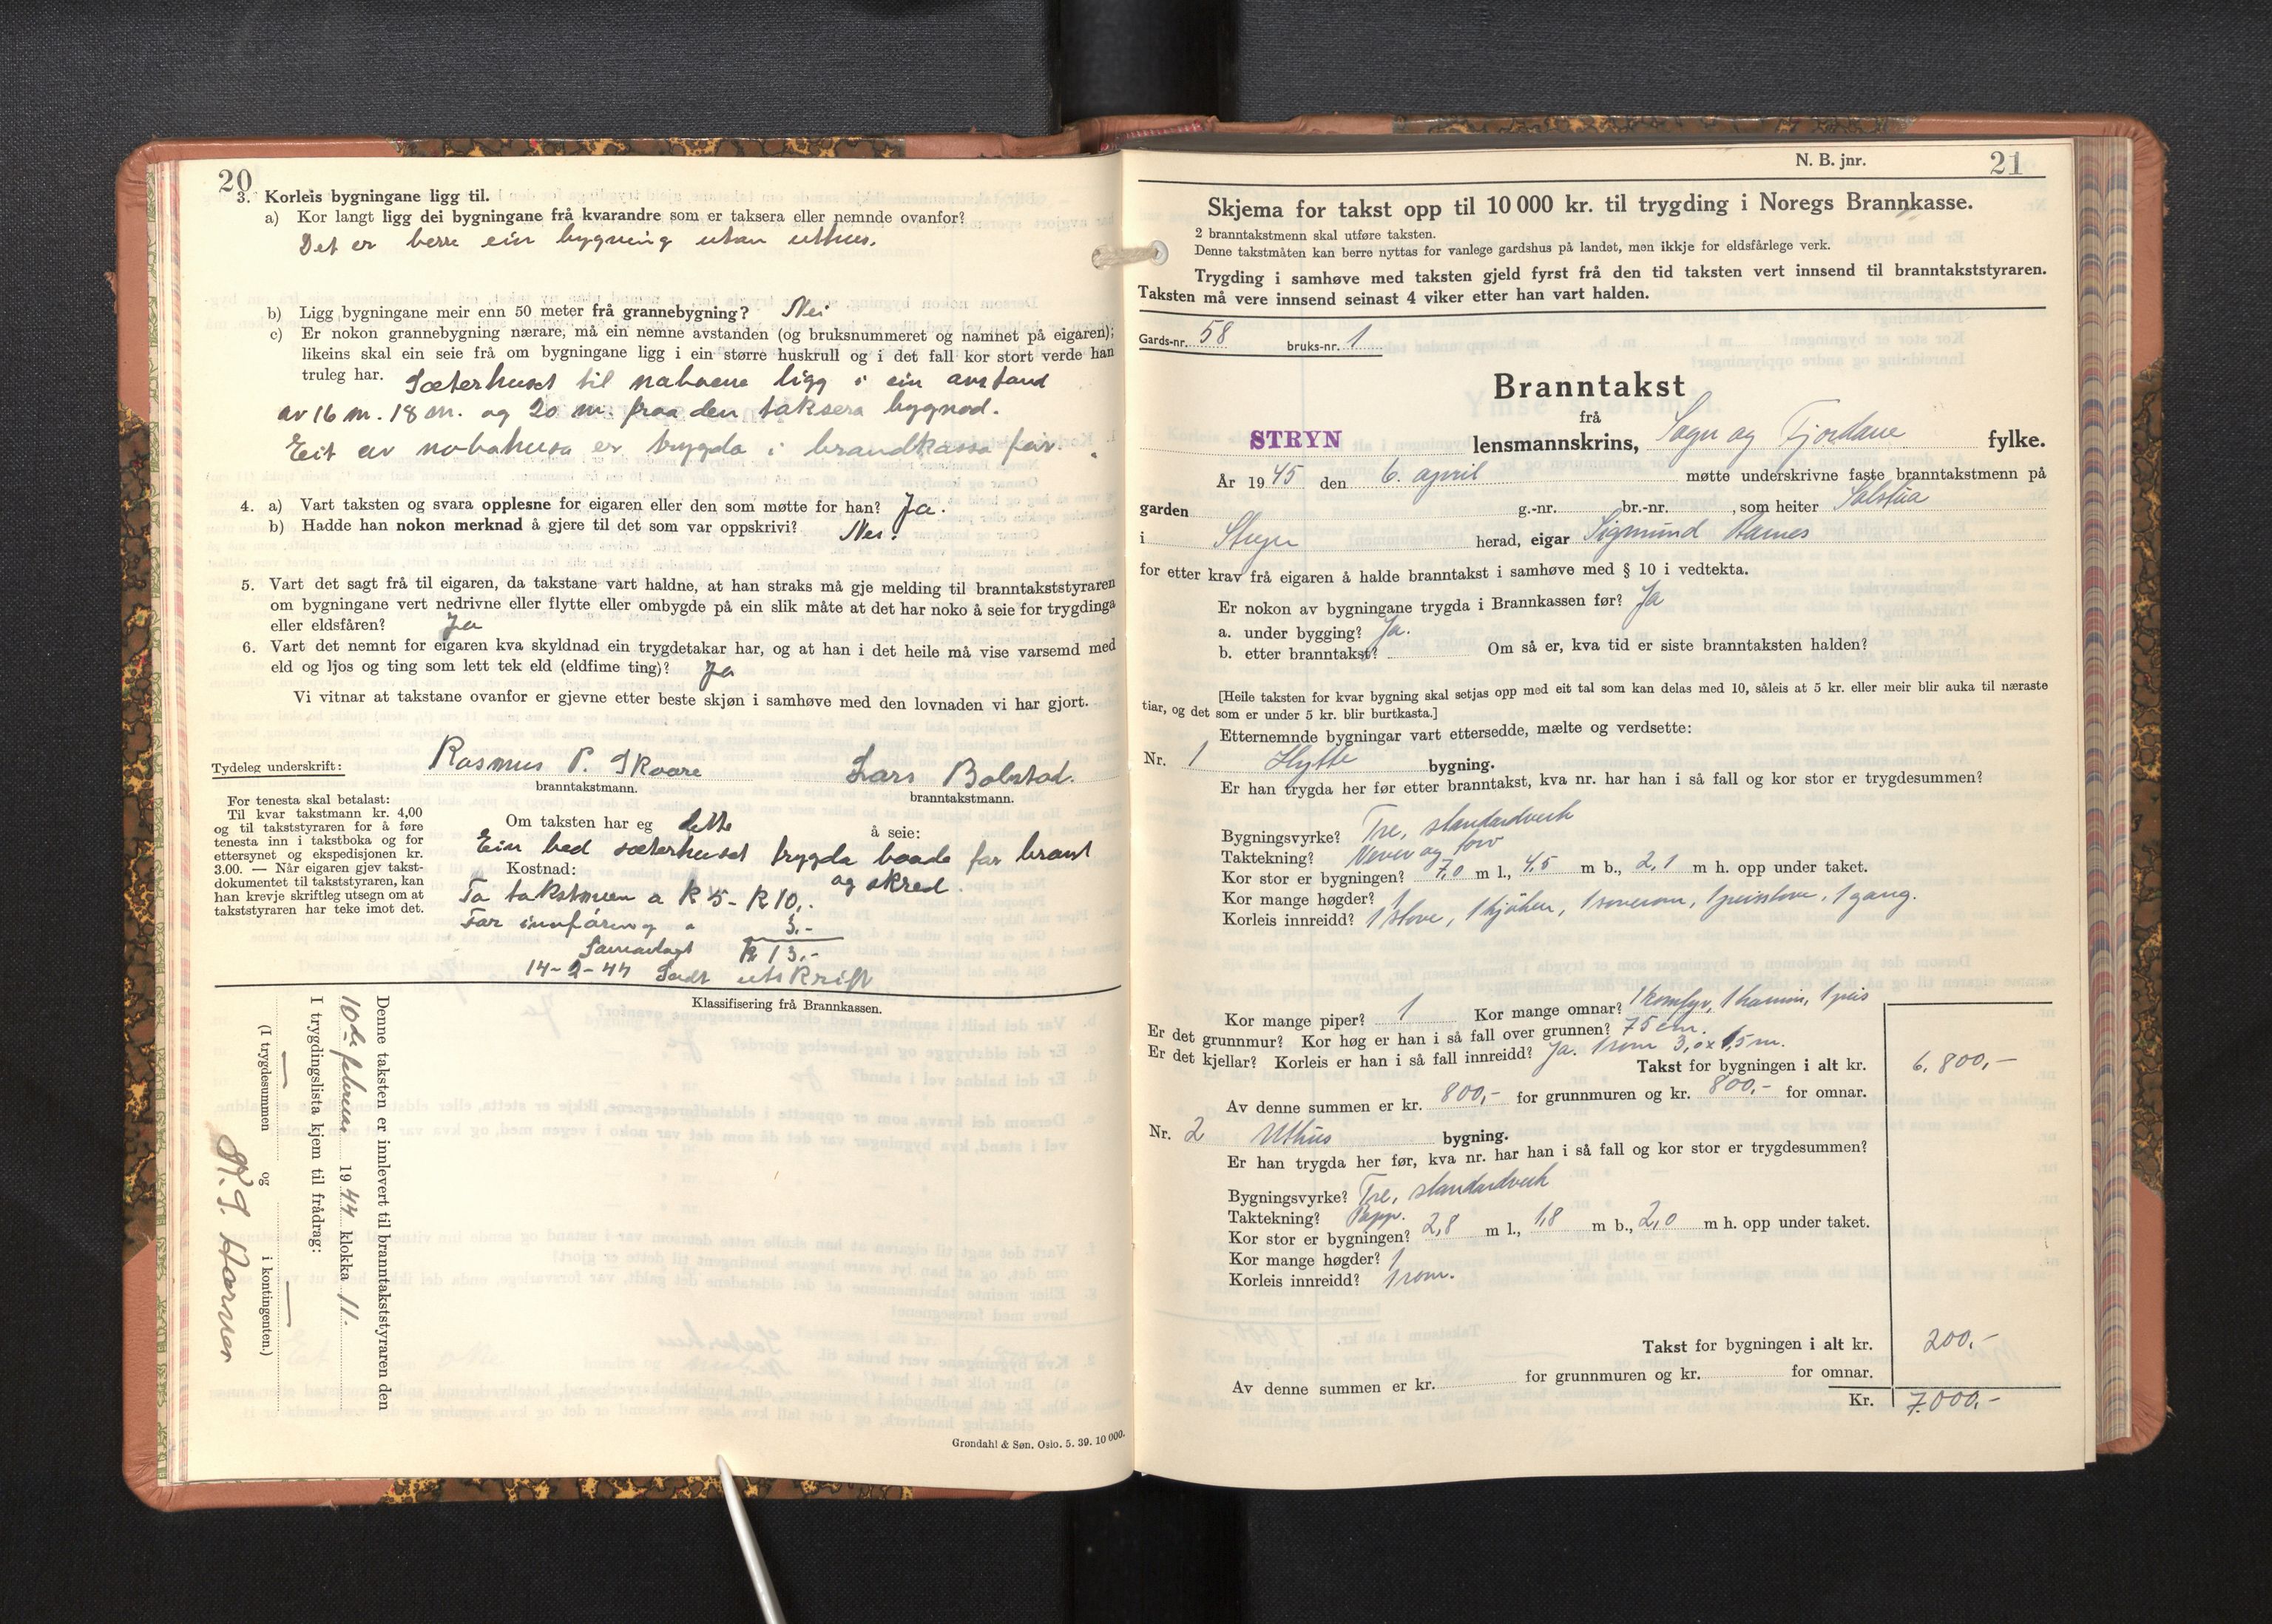 20
3. Korleis bygningane ligg til.
a) Kor langt ligg dei bygningane frå kvarandre som er taksera eller nemnde ovanfor?
Det er berre ein bygning utan uthus.
b) Ligg bygningane meir enn 50 meter frå grannebygning? Nei
c) Er nokon grannebygning nærare, må ein nemne avstanden (og bruksnummeret og namnet på eigaren);
likeins skal ein seie frå om bygningane ligg i ein større huskrull og i det fall kor stort verde han
truleg har. Sæterhuset til naboene ligg i ein avstand
av 16 m. 18 m. og 20 m. fraa den taksera bygnad.
Eit av nabohusa er trygda i brandkassa før.
4. a) Vart taksten og svara opplesne for eigaren eller den som møtte for han? Ja.
b) Hadde han nokon merknad å gjere til det som var oppskrivi? Nei.
5. Vart det sagt frå til eigaren, da takstane vart haldne, at han straks må gje melding til branntakststyraren
om bygningane vert nedrivne eller flytte eller ombygde på ein slik måte at det har noko å seie for trygdinga
eller eldsfåren? Ja
6. Vart det nemnt for eigaren kva skyldnad ein trygdetakar har, og at han i det heile må vise varsemd med
eld og ljos og ting som lett tek eld (eldfime ting)? Ja
Vi vitnar at takstane ovanfor er gjevne etter beste skjøn i samhøve med den lovnaden vi har gjort.
Tydeleg underskrift: Rasmus P. Skaare Lars Bolstad.
branntakstmann. branntakstmann.
For tenesta skal betalast:
Til kvar takstmann kr. 4,00
og til takststyraren for å føre
tenesta inn i takstboka og for
ettersynet og ekspedisjonen kr.
3.00. — Når eigaren gjev takst-
dokumentet til takststyraren, kan
han krevje skriftleg utsegn om at
takststyraren har teke imot det.
Om taksten har eg dette å seie:
Ein bed sæterhuset trygda baade for brant
og skred.
Kostnad:
To takstmen a k 5 - k 10,-
For innføring " 3,-
Samanlagt k 13,-
14-2-44 Sendt utskrift
Klassifisering frå Brannkassen.
Denne taksten er innlevert til branntakststyraren den
10de februar 1944 klokka 11.
I trygdingslista kjem til frådrag:
(I trygdesummen — og i kontingenten.) —
Grøndahl & Søn. Oslo. 5. 39. 10 000.
N. B. jnr. 21
Skjema for takst opp til 10 000 kr. til trygding i Noregs Brannkasse.
2 branntakstmenn skal utføre taksten.
Denne takstmåten kan berre nyttas for vanlege gardshus på landet, men ikkje for eldsfårlege verk.
Trygding i samhøve med taksten gjeld fyrst frå den tid taksten vert innsend til branntakststyraren.
Taksten må vere innsend seinast 4 viker etter han vart halden.
Gards-nr. 58 bruks-nr. 1
Branntakst
frå
STRYN lensmannskrins, Sogn og Fjordane fylke.
År 1945 den 6. april møtte underskrivne faste branntakstmenn på
garden g.-nr. br.-nr. , som heiter Solstua
i Stryn herad, eigar Sigmund Aarnes
for etter krav frå eigaren å halde branntakst i samhøve med § 10 i vedtekta.
Er nokon av bygningane trygda i Brannkassen før? Ja
a. under bygging? Ja.
b. etter branntakst? Om så er, kva tid er siste branntaksten halden?
[Heile taksten for kvar bygning skal setjas opp med eit tal som kan delas med 10, såleis at 5 kr. eller meir blir auka til næraste
tiar, og det som er under 5 kr. blir burtkasta.]
Etternemnde bygningar vart ettersedde, mælte og verdsette:
Nr. 1 Hytte bygning.
Er han trygda her før etter branntakst, kva nr. har han i så fall og kor stor er trygdesummen?
Bygningsvyrke? Tre, standardverk
Taktekning? Never og torv
Kor stor er bygningen? 7,0 m l., 4,5 m b., 2,1 m h. opp under taket.
Kor mange høgder? 1
Korleis innreidd? 1 stove, 1 kjøken, 1 soverom, 1 peisstove, 1 gang.
Kor mange piper? 1 Kor mange omnar? 1 komfyr, 1 kamin, 1 peis
Er det grunnmur? Kor høg er han i så fall over grunnen? 75 cm.
Er det kjellar? Korleis er han i så fall innreidd? Ja. 1 rom 3,0 x 1,5 m.
Takst for bygningen i alt kr. 6.800,-
Av denne summen er kr. 800,- for grunnmuren og kr. 800,- for omnar.
Nr. 2 Uthus bygning.
Er han trygda her før, kva nr. har han i så fall og kor stor er trygdesummen?
Bygningsvyrke? Tre, standardverk
Taktekning? Papp.
Kor stor er bygningen? 2,8 m l., 1,8 m b., 2,0 m h. opp under taket.
Kor mange høgder? 1
Korleis innreidd? 1 rom.
Takst for bygningen i alt kr. 200,-
Av denne summen er kr. for grunnmuren og kr. for omnar.
Kr. 7.000,-